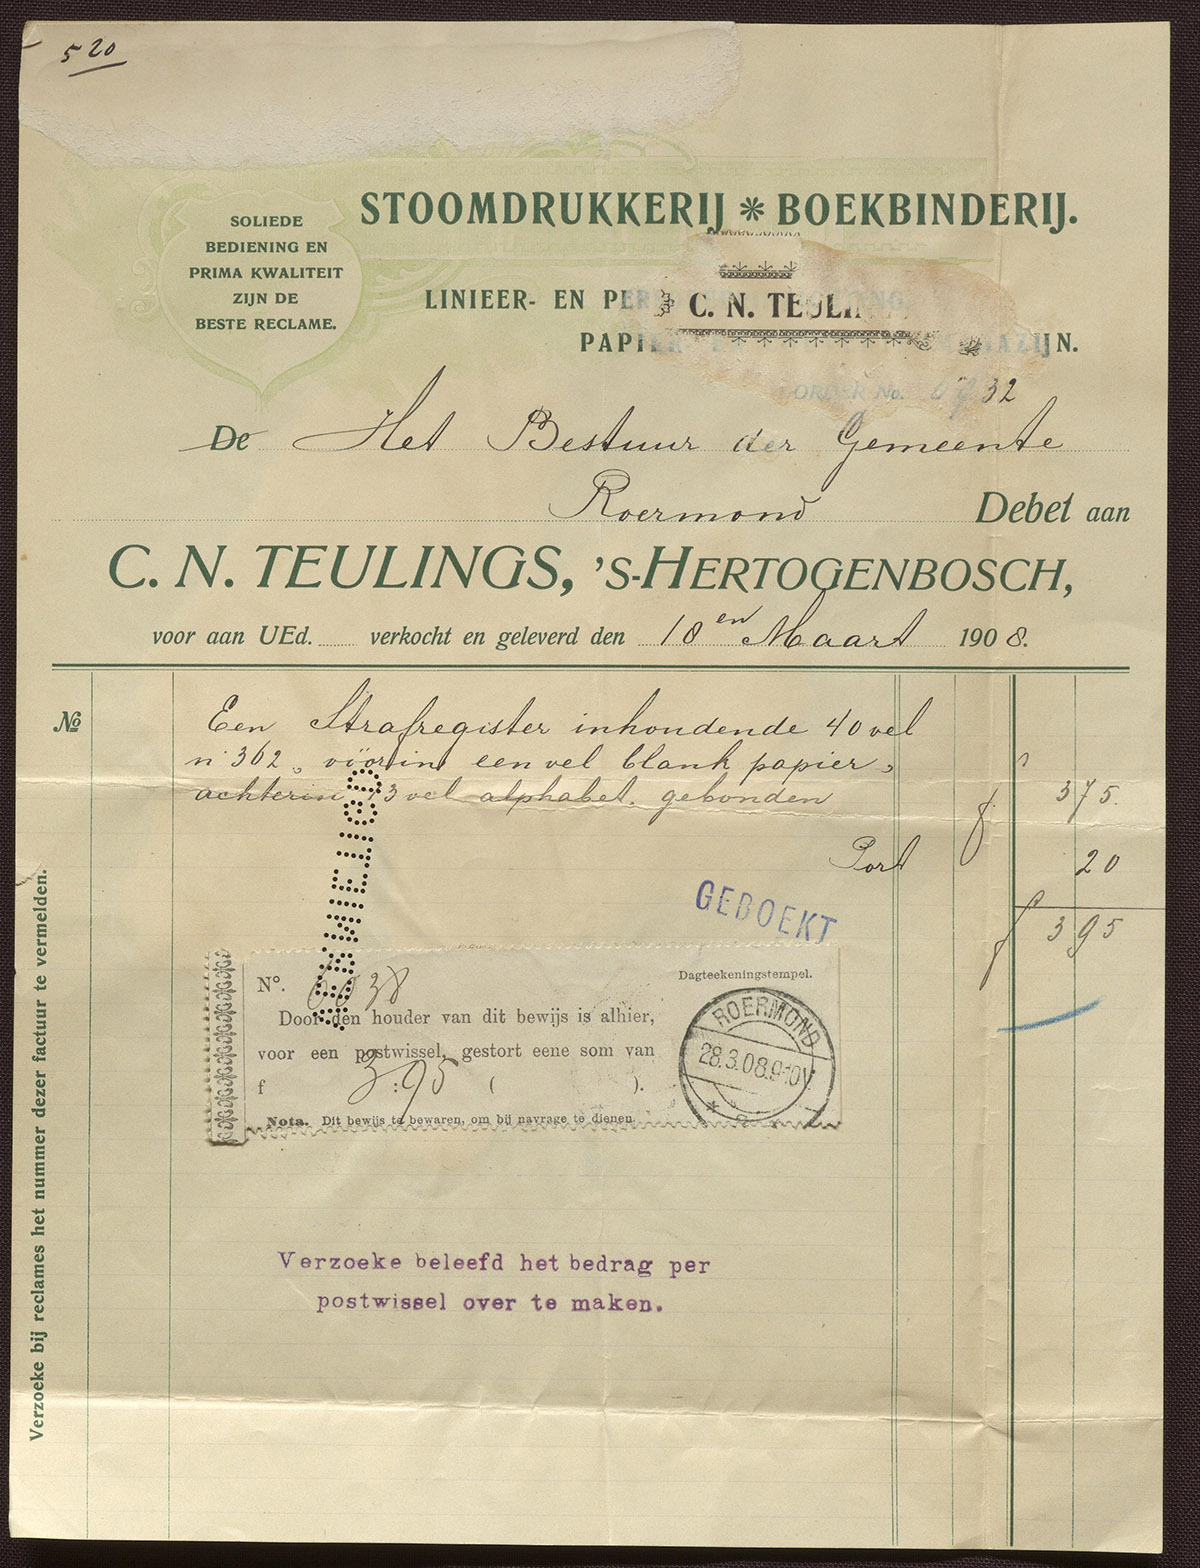 5 20
STOOMDRUKKERIJ * BOEKBINDERIJ.
SOLIEDE
BEDIENING EN
PRIMA KWALITEIT
ZIJN DE
BESTE RECLAME.
LINIEER- EN
C. N. TEULING
ORDER No. 32
De Het Bestuur der Gemeente
Roermond Debet aan
C. N. TEULINGS, 's-HERTOGENBOSCH,
voor aan UEd. verkocht en geleverd den 18en Maart 1908.
No
Een Strafregister inhoudende 40 vel
n° 362, vóórin een vel blank papier,
achterin 3 vel alphabet. gebonden f 3 75.
Port 20
f 3 95
GEBOEKT
No. 38
Dagteekeningstempel.
Door den houder van dit bewijs is alhier,
voor een postwissel, gestort eene som van
f 3:95 ( ).
Nota. Dit bewijs te bewaren, om bij navrage te dienen.
ROERMOND
28.3.08.9-10V
Verzoeke beleefd het bedrag per
postwissel over te maken.
Verzoeke bij reclames het nummer dezer factuur te vermelden.